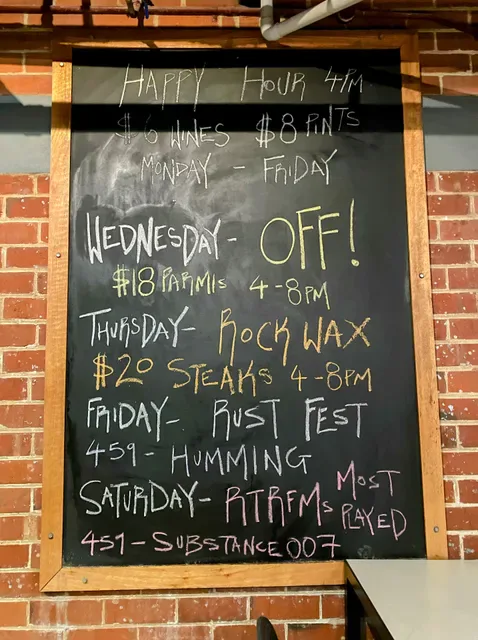 HAPPY HOUR 4PM
$6 WINES $8 PINTS
MONDAY - FRIDAY
WEDNESDAY- OFF!
$18 PARMIS 4-8PM
THURSDAY- ROCK WAX
$20 STEAKS 4-8PM
FRIDAY- RUST FEST
459- HUMMING
SATURDAY- RTRFMs MOST PLAYED
459- SUBSTANCE 007